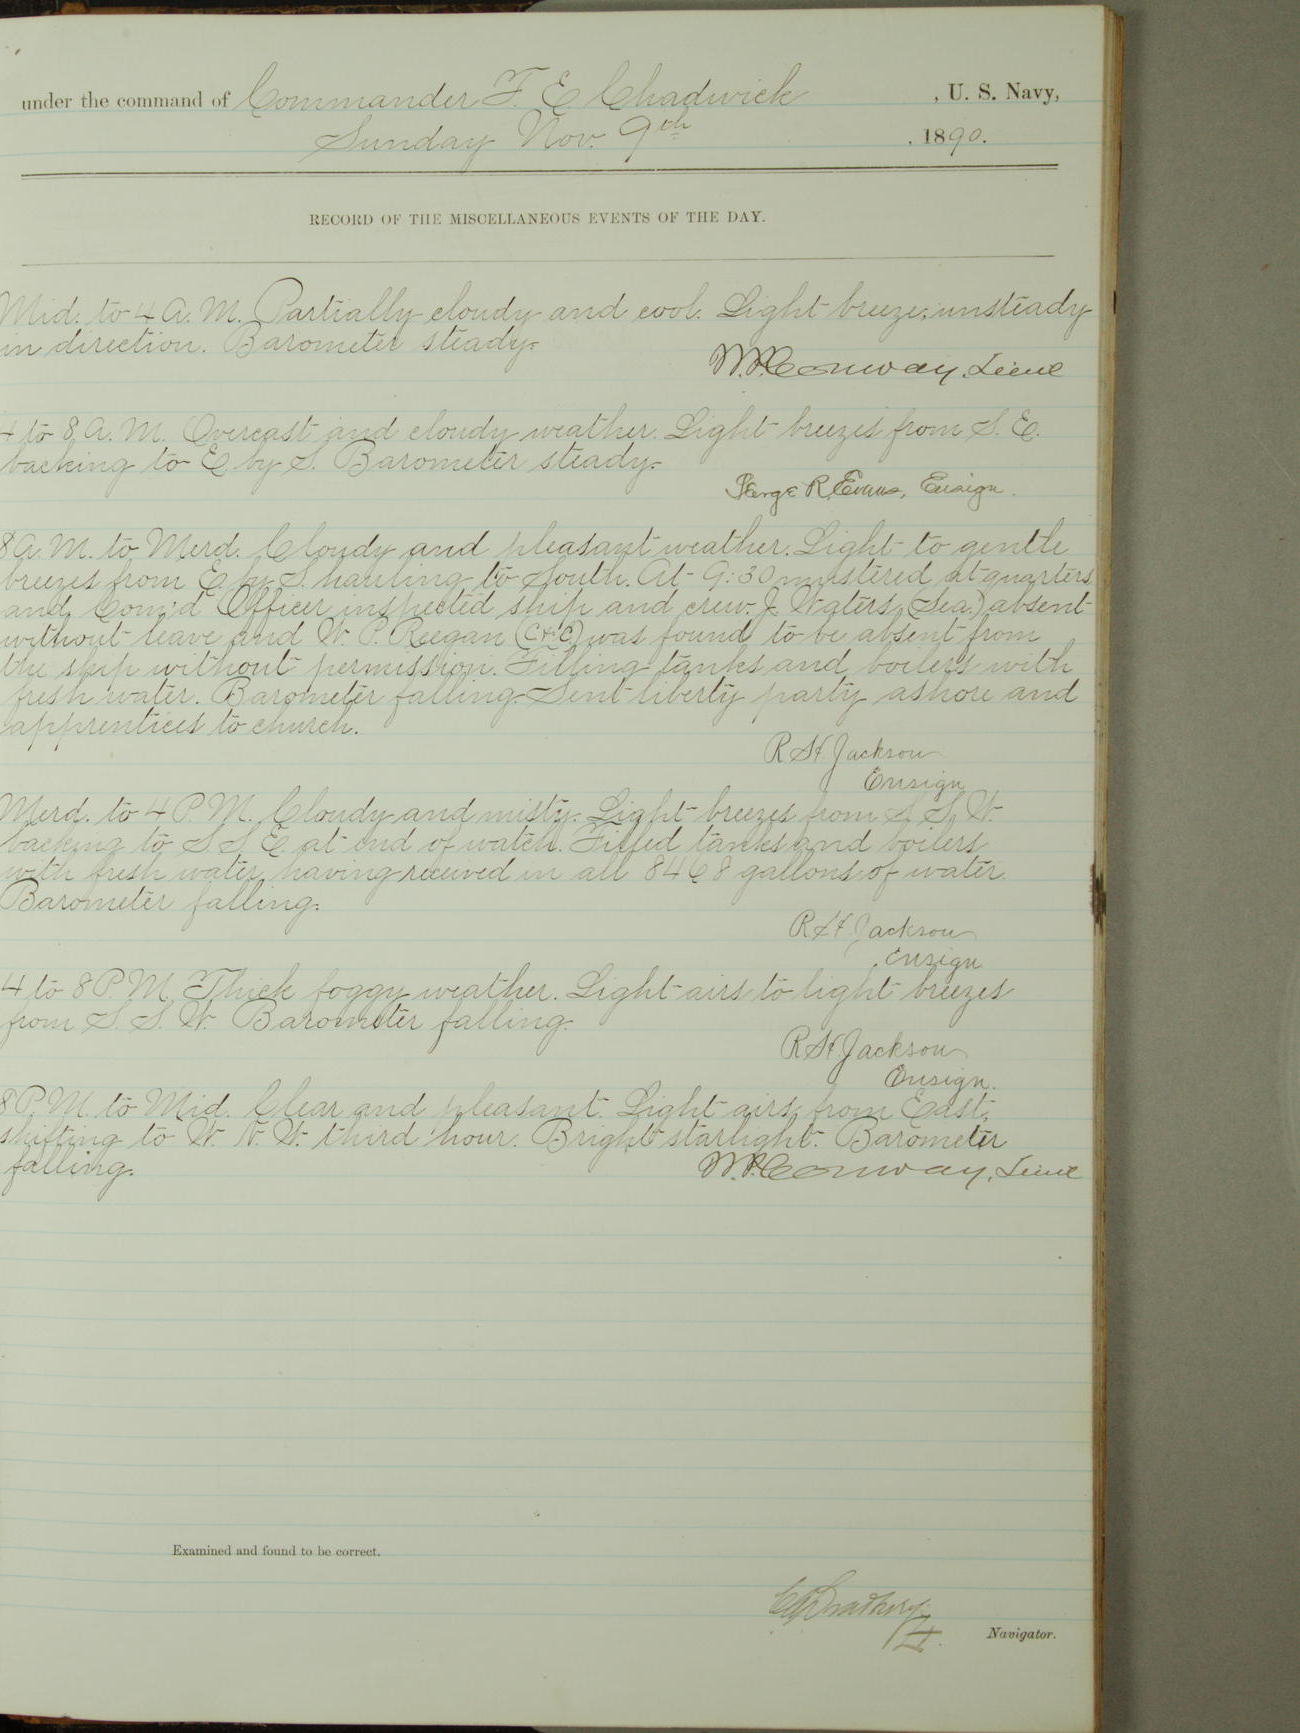 under the command of Commander F. E. Chadwick, U. S. Navy,
Sunday Nov. 9th, 1890.
RECORD OF THE MISCELLANEOUS EVENTS OF THE DAY.
Mid. to 4 A. M. Partially cloudy and cool. Light breeze, unsteady
in direction. Barometer steady.
W. P. Conway, Lieut
4 to 8 A. M. Overcast and cloudy weather. Light breezes from S. E.
backing to E by S. Barometer steady.
George R. Evans, Ensign.
8 A. M. to Merd. Cloudy and pleasant weather. Light to gentle
breezes from E. by S. hauling to South. At 9:30 mustered at quarters
and Com'd Officer inspected ship and crew. J. Waters, (Sea.) absent
without leave and W. P. Reegan (C.H.C) was found to be absent from
the ship without permission. Filling tanks and boilers with
fresh water. Barometer falling. Sent liberty party ashore and
apprentices to church.
R H Jackson
Ensign
Merd. to 4 P. M. Cloudy and misty. Light breezes from S. S. W.
backing to S S E at end of watch. Filled tanks and boilers
with fresh water, having received in all 8468 gallons of water.
Barometer falling.
R H Jackson
Ensign
4 to 8 P. M. Thick foggy weather. Light airs to light breezes
from S. S. W. Barometer falling.
R H Jackson
Ensign.
8 P. M. to Mid. Clear and pleasant. Light airs from East,
shifting to W. N. W. third hour. Bright starlight. Barometer
falling.
W. P. Conway, Lieut
Examined and found to be correct.
Navigator.